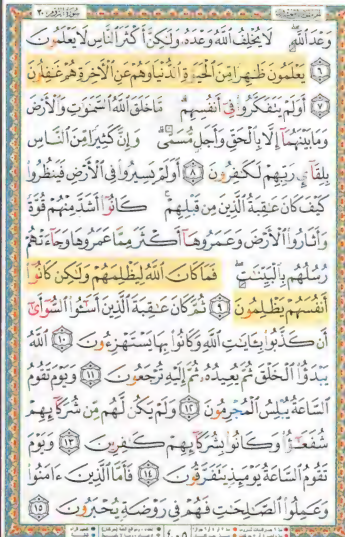 سُورَةُ الرُّومِ ٣٠
وَعْدَ ٱللَّهِۖ لَا يُخۡلِفُ ٱللَّهُ وَعۡدَهُۥ وَلَٰكِنَّ أَكۡثَرَ ٱلنَّاسِ لَا يَعۡلَمُونَ
٦ يَعۡلَمُونَ ظَٰهِرٗا مِّنَ ٱلۡحَيَوٰةِ ٱلدُّنۡيَا وَهُمۡ عَنِ ٱلۡأٓخِرَةِ هُمۡ غَٰفِلُونَ
٧ أَوَلَمۡ يَتَفَكَّرُواْ فِيٓ أَنفُسِهِمۗ مَّا خَلَقَ ٱللَّهُ ٱلسَّمَٰوَٰتِ وَٱلۡأَرۡضَ
وَمَا بَيۡنَهُمَآ إِلَّا بِٱلۡحَقِّ وَأَجَلٖ مُّسَمّٗىۗ وَإِنَّ كَثِيرٗا مِّنَ ٱلنَّاسِ
بِلِقَآيِٕ رَبِّهِمۡ لَكَٰفِرُونَ ٨ أَوَلَمۡ يَسِيرُواْ فِي ٱلۡأَرۡضِ فَيَنظُرُواْ
كَيۡفَ كَانَ عَٰقِبَةُ ٱلَّذِينَ مِن قَبۡلِهِمۡۚ كَانُوٓاْ أَشَدَّ مِنۡهُمۡ قُوَّةٗ
وَأَثَارُواْ ٱلۡأَرۡضَ وَعَمَرُوهَآ أَكۡثَرَ مِمَّا عَمَرُوهَا وَجَآءَتۡهُمۡ
رُسُلُهُم بِٱلۡبَيِّنَٰتِۖ فَمَا كَانَ ٱللَّهُ لِيَظۡلِمَهُمۡ وَلَٰكِن كَانُوٓاْ
أَنفُسَهُمۡ يَظۡلِمُونَ ٩ ثُمَّ كَانَ عَٰقِبَةَ ٱلَّذِينَ أَسَٰٓـُٔواْ ٱلسُّوٓأَىٰٓ
أَن كَذَّبُواْ بِـَٔايَٰتِ ٱللَّهِ وَكَانُواْ بِهَا يَسۡتَهۡزِءُونَ ١٠ ٱللَّهُ
يَبۡدَؤُاْ ٱلۡخَلۡقَ ثُمَّ يُعِيدُهُۥ ثُمَّ إِلَيۡهِ تُرۡجَعُونَ ١١ وَيَوۡمَ تَقُومُ
ٱلسَّاعَةُ يُبۡلِسُ ٱلۡمُجۡرِمُونَ ١٢ وَلَمۡ يَكُن لَّهُم مِّن شُرَكَآئِهِمۡ
شُفَعَٰٓؤُاْ وَكَانُواْ بِشُرَكَآئِهِمۡ كَٰفِرِينَ ١٣ وَيَوۡمَ
تَقُومُ ٱلسَّاعَةُ يَوۡمَئِذٖ يَتَفَرَّقُونَ ١٤ فَأَمَّا ٱلَّذِينَ ءَامَنُواْ
وَعَمِلُواْ ٱلصَّٰلِحَٰتِ فَهُمۡ فِي رَوۡضَةٖ يُحۡبَرُونَ ١٥
٤٠٥